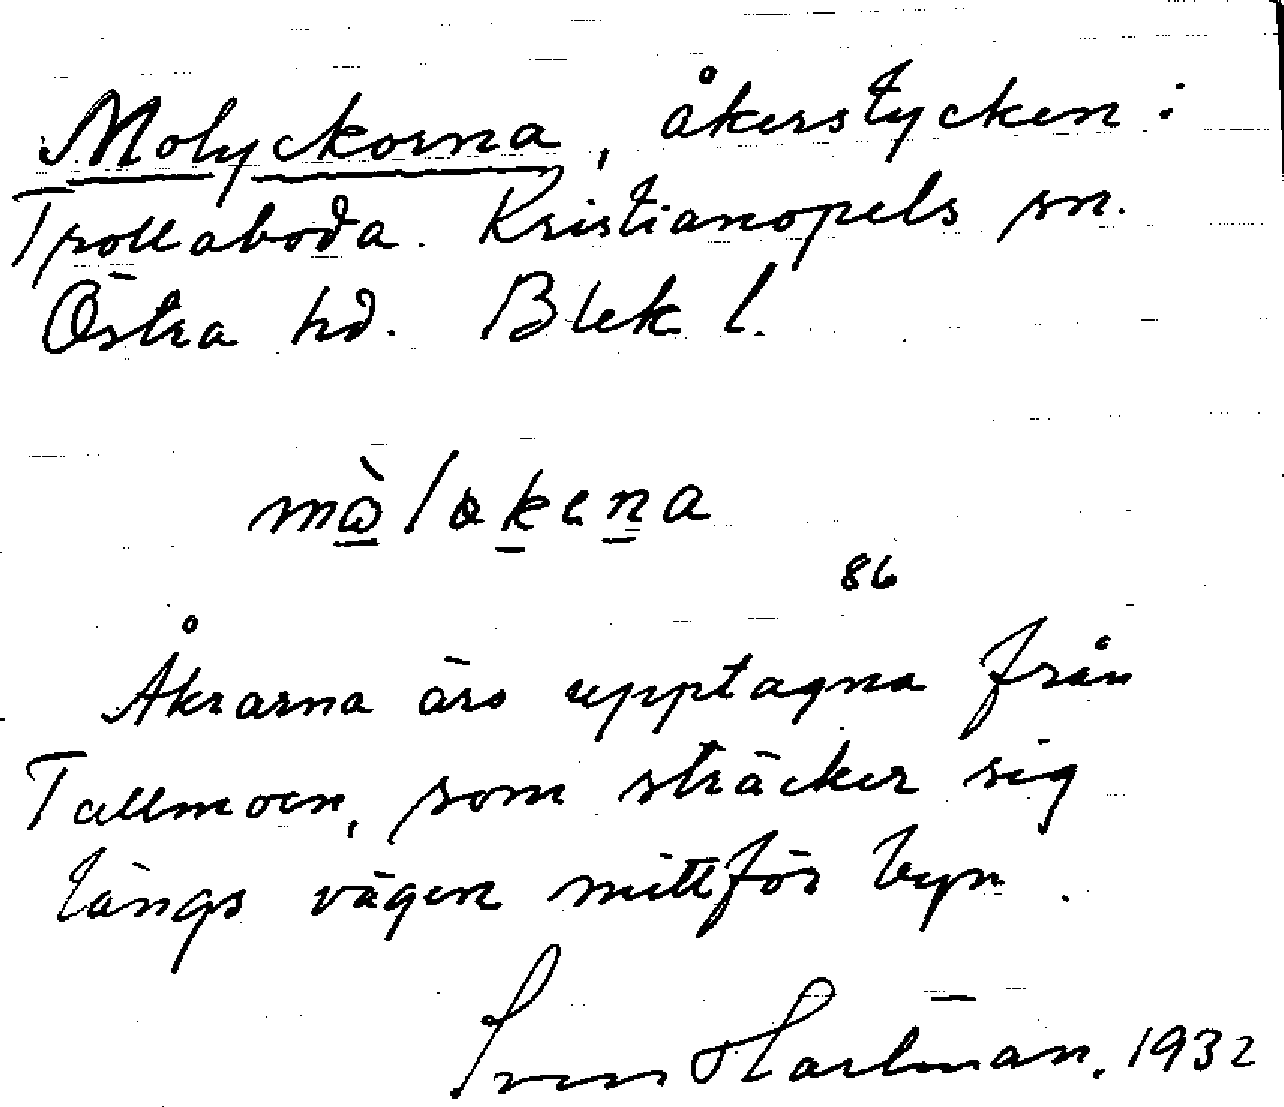 Molyckorna, åkerstycken i
Trollaboda. Kristianopels sn.
Östra hd. Blek l.
86
Åkrarna äro upptagna från
Tallmoen, som sträcker sig
längs vägen mittför byn.
Sven Hartman. 1932